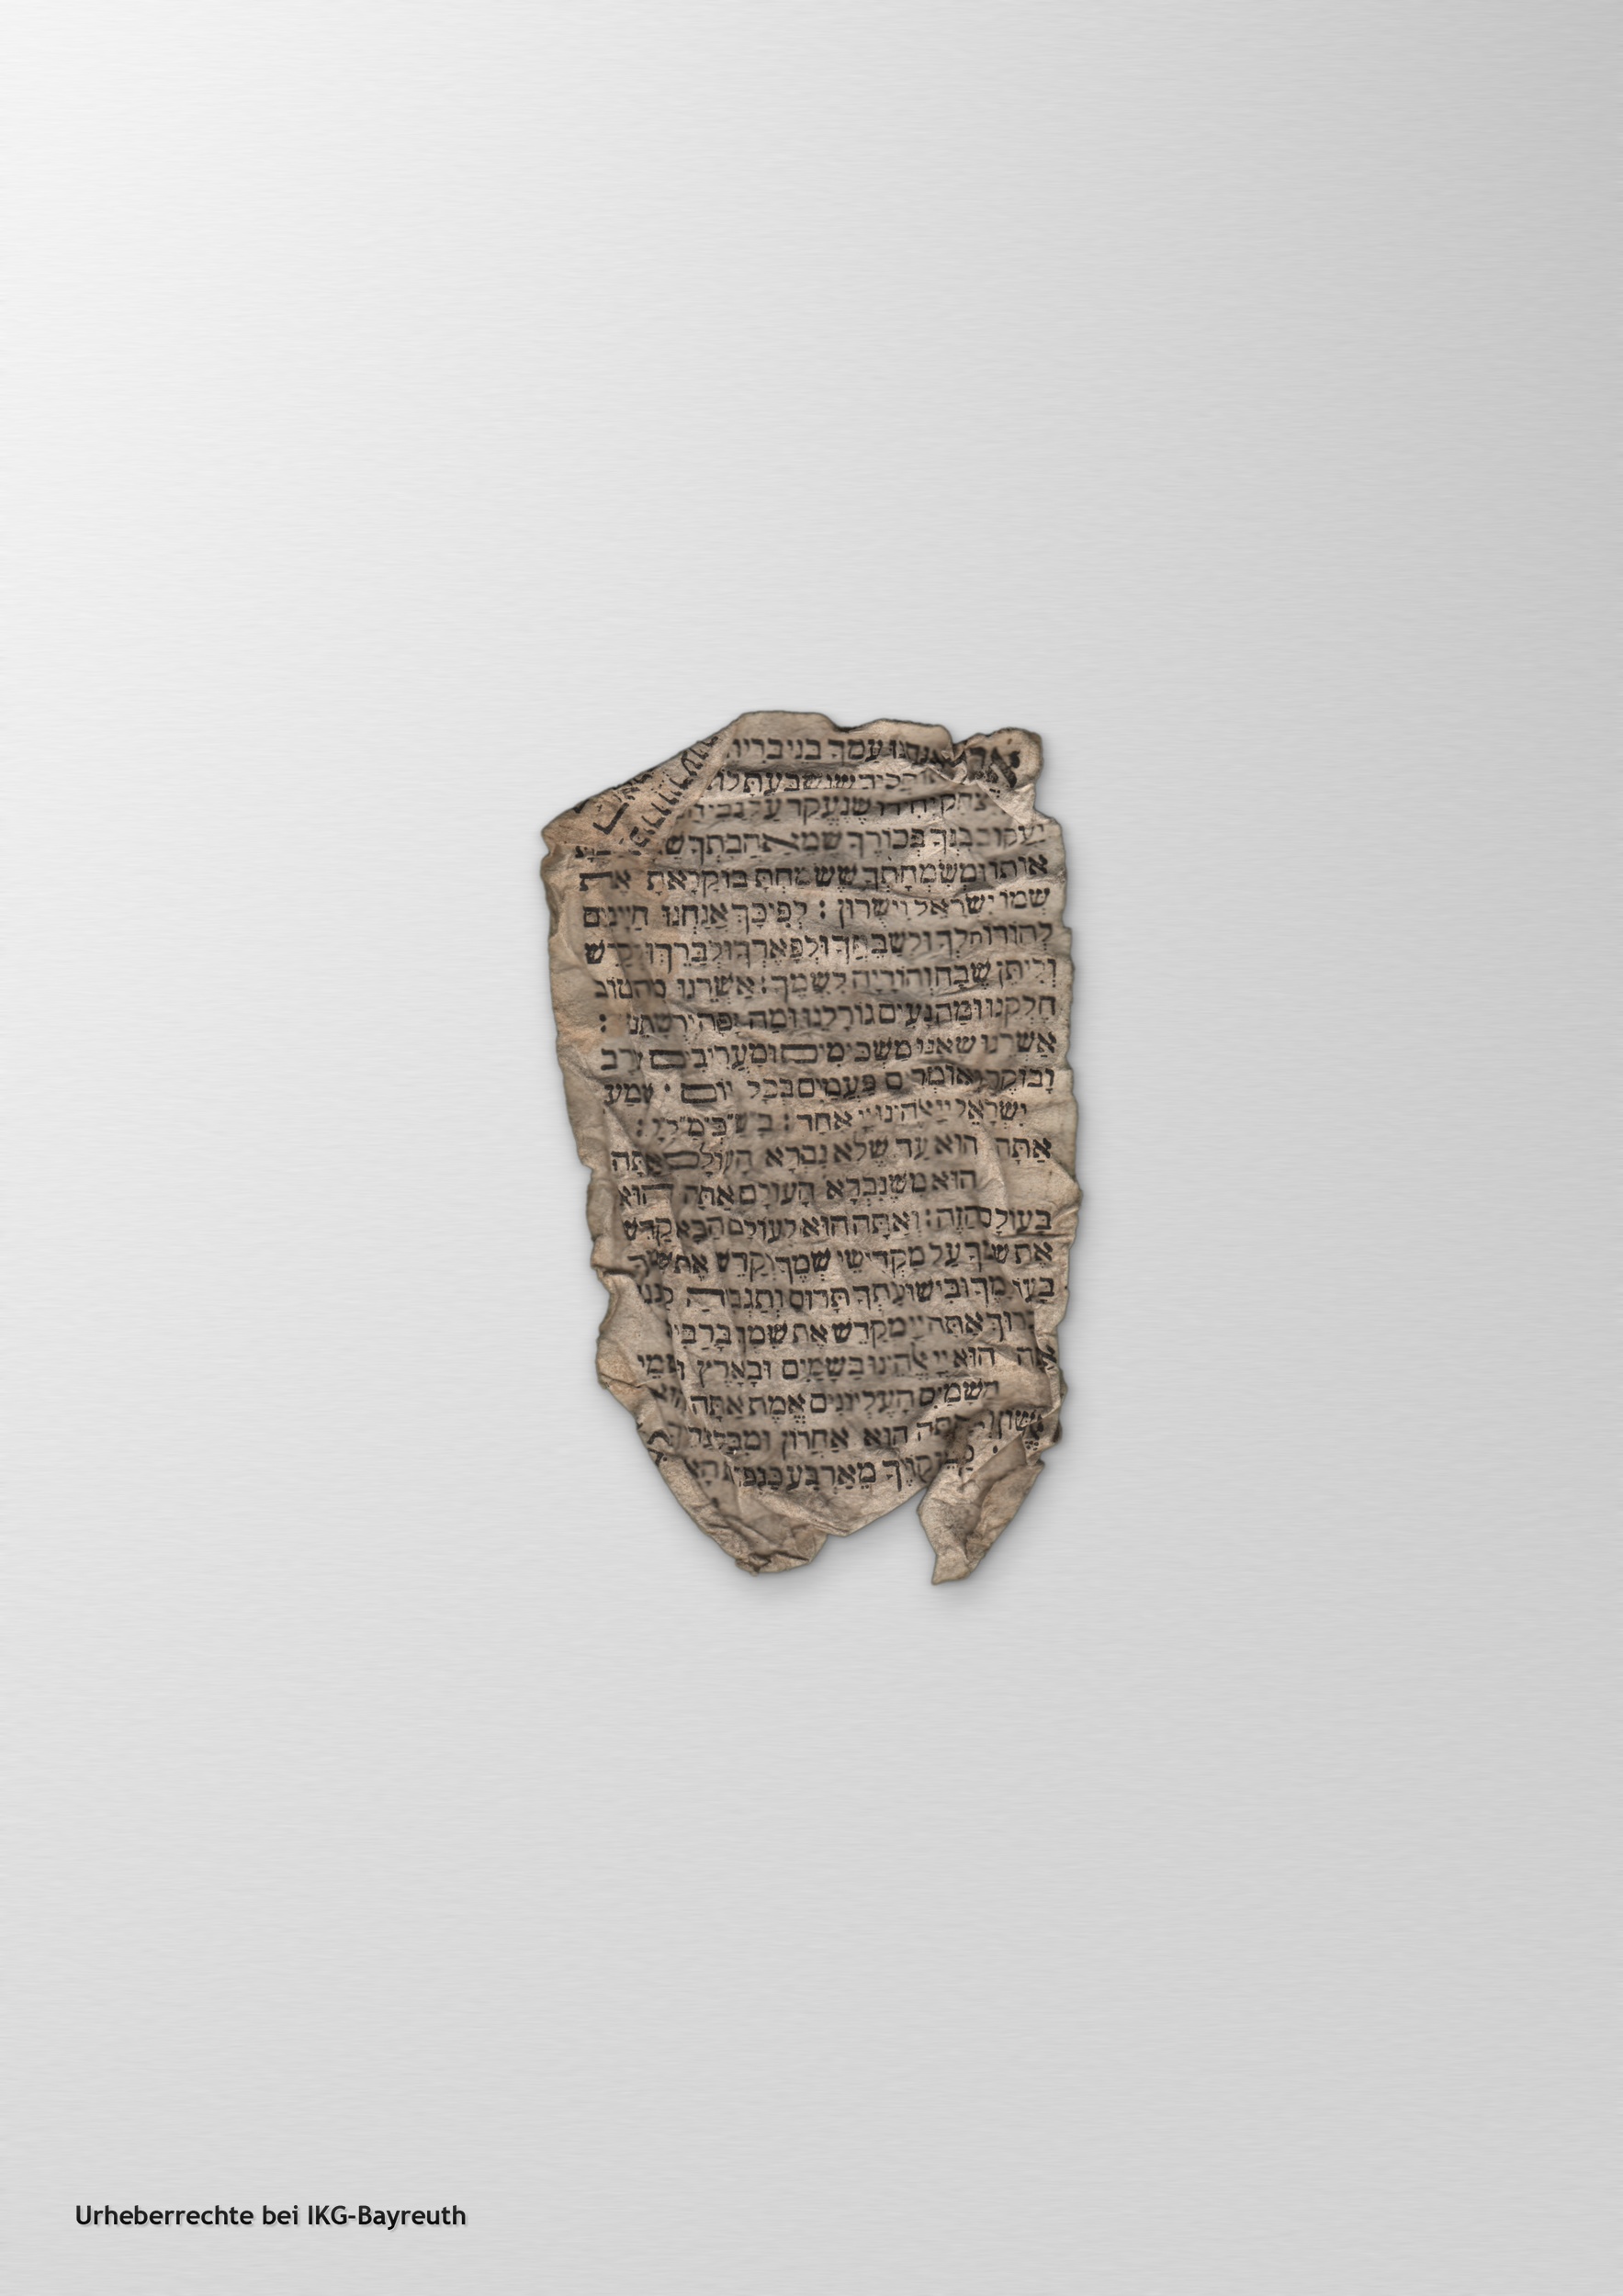 אבל אנחנו עמך בני בריתך
שנשבעת לו
יצחק יחידו שנעקד על גבי
יעקב בנך בכורך שמאהבתך ש
אותו ומשמחתך ששמחת בו קראת את
שמו ישראל וישרון : לפיכך אנחנו חייבים
להודות לך ולשבחך ולפארך ולברך ולקדש
וליתן שבח והודיה לשמך : אשרנו מה טוב
חלקנו ומה נעים גורלנו ומה יפה ירשתנו :
אשרנו שאנו משכימים ומעריבים ערב
ובוקר ואומרים פעמים בכל יום · שמע
ישראל ייי אלהינו ייי אחד : ב״ש״כ״מ״ל״ו :
אתה הוא עד שלא נברא העולם אתה
הוא משנברא העולם אתה הוא
בעולם הזה : ואתה הוא לעולם הבא קדש
את שמך על מקדישי שמך וקדש את שמך
בעולמך ובישועתך תרום ותגביה קרננו
ברוך אתה ייי מקדש את שמך ברבי
אתה הוא ייי אלהינו בשמים ובארץ ושמי
השמים העליונים אמת אתה הוא
ראשון ואתה הוא אחרון ומבלעדיך
קויך מארבע כנפות הא
Urheberrechte bei IKG-Bayreuth